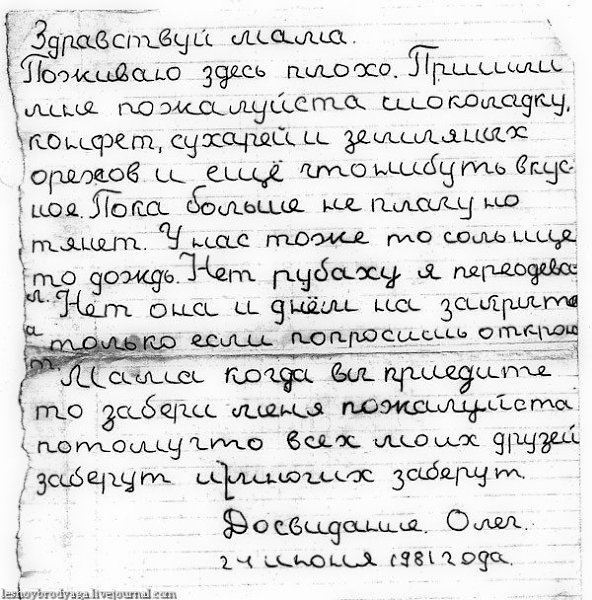 Здравствуй мама.
Поживаю здесь плохо. Пришли
мне пожалуйста шоколадку,
конфет, сухарей и земляных
орехов и ещё чтонибуть вкус-
ное. Пока больше не плачу но
тянет. У нас тоже то солнце
то дождь. Нет рубаху я переодева-
л. Нет она и днём на закрыта
а только если попросишь откроют.
Мама когда вы приедите
то забери меня пожалуйста
потомучто всех моих друзей
заберут и многих заберут.
Досвидание. Олег.
24 июня 1981 года.
leshoybrodyaga.livejournal.com